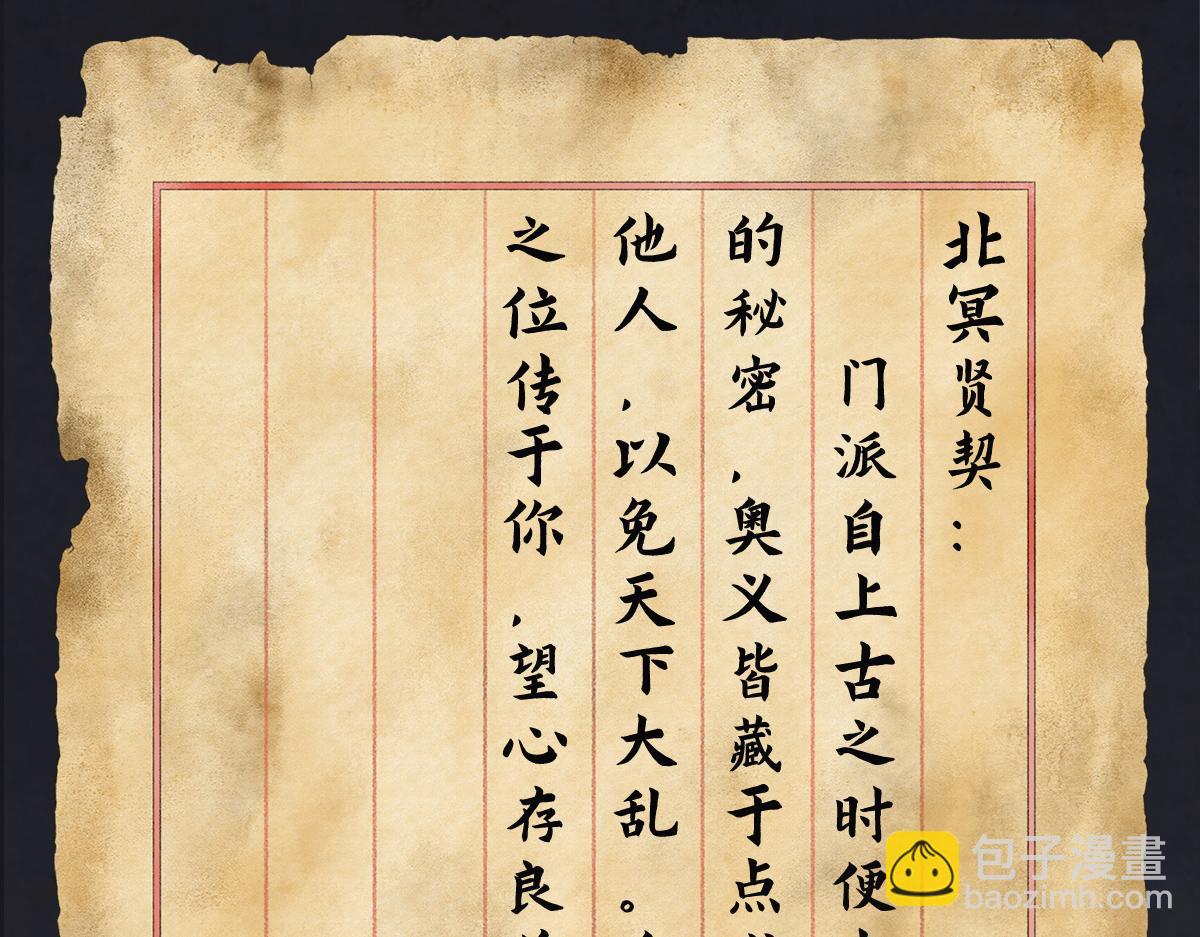 北冥贤契：
门派自上古之时便
的秘密，奥义皆藏于点
他人，以免天下大乱。
之位传于你，望心存良
包子漫畫
baozimh.com